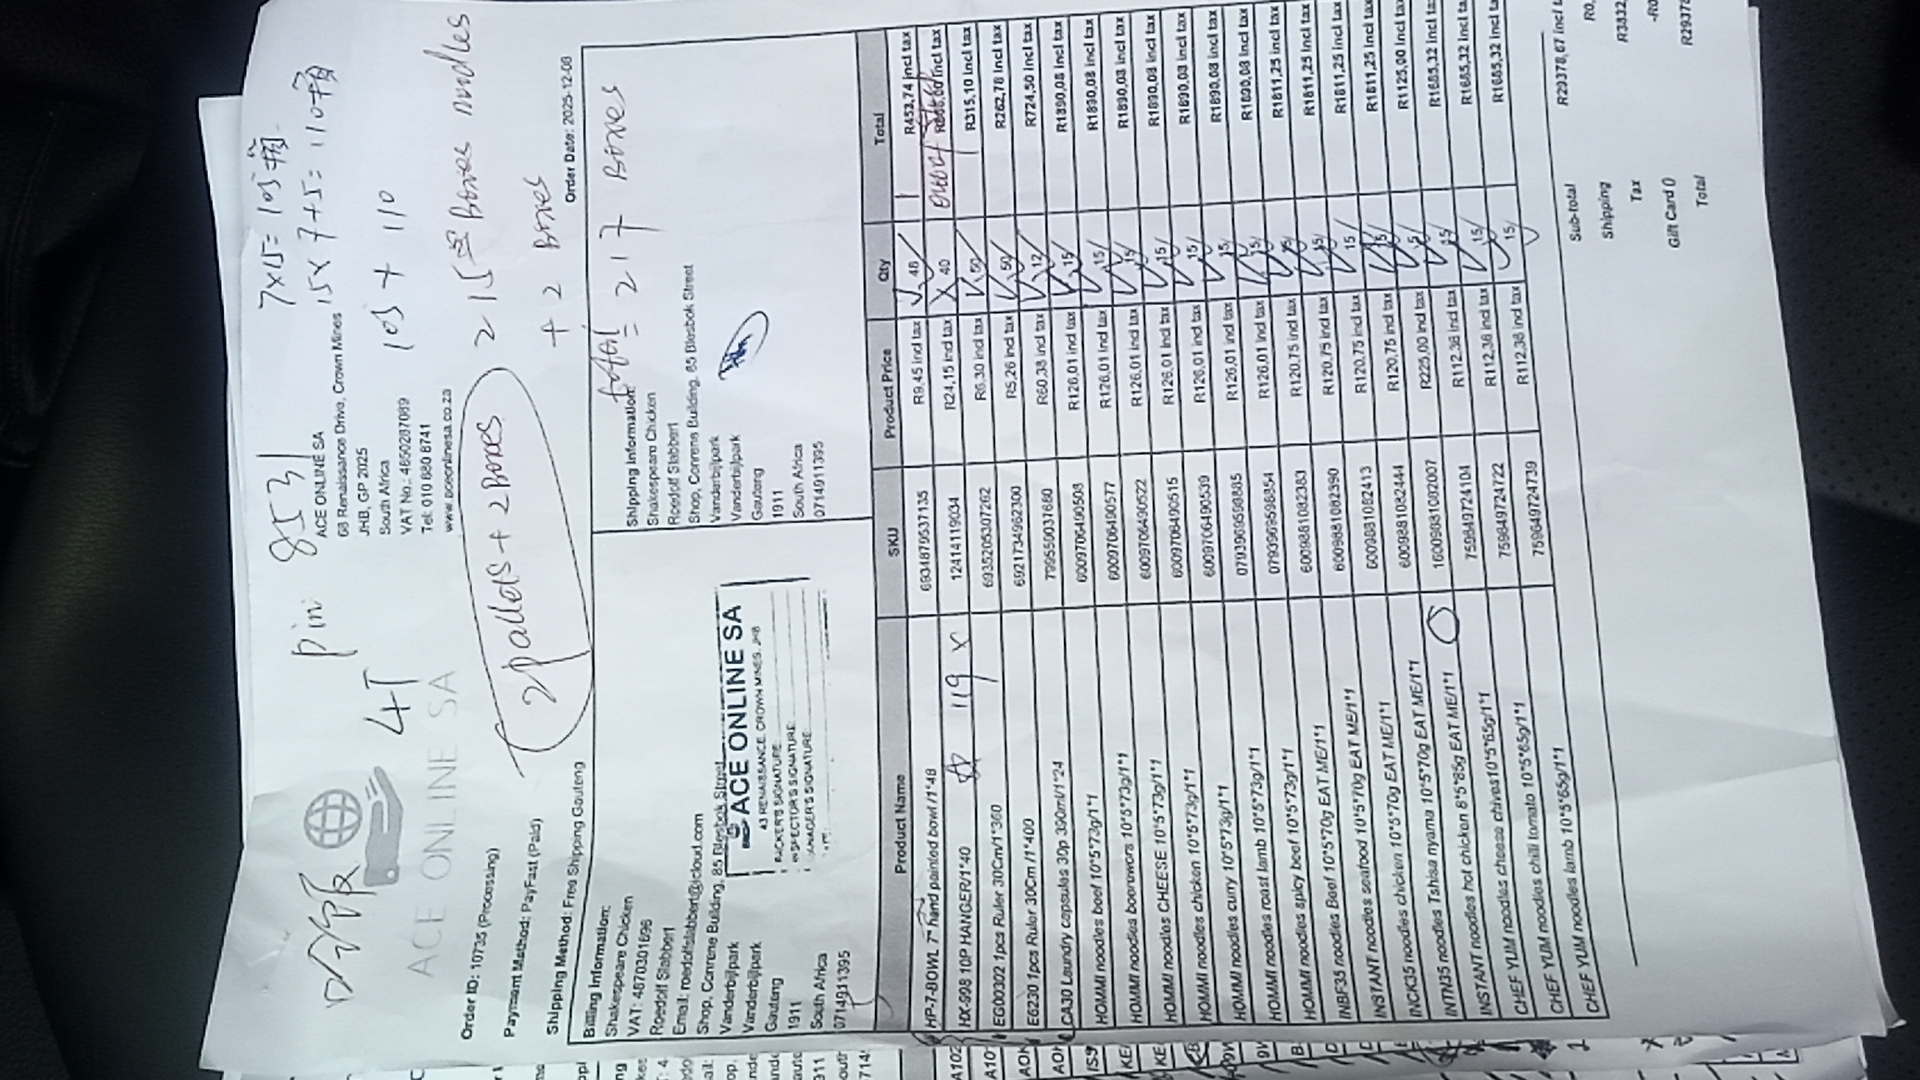 pin 8531
7×15=105
15×7+5=110
4T
105 + 110
ACE ONLINE SA
ACE ONLINE SA
68 Renaissance Drive, Crown Mines
JHB, GP 2025
South Africa
VAT No.: 4650287089
Tel: 010 880 8741
www.aceonlinesa.co.za
2 pallets + 2 Boxes
215 Boxes nudles
+ 2 Boxes
= 217 Boxes
Order ID: 10735 (Processing)
Payment Method: PayFast (Paid)
Shipping Method: Free Shipping Gauteng
Order Date: 2025-12-08
Billing Information:
Shakespeare Chicken
VAT: 4870301696
Roedolf Slabbert
Email: roedolfslabbert@icloud.com
Shop, Conrene Building, 85 Blesbok Street
Vanderbijlpark
Vanderbijlpark
Gauteng
1911
South Africa
0714911395
Shipping Information:
Shakespeare Chicken
Roedolf Slabbert
Shop, Conrene Building, 85 Blesbok Street
Vanderbijlpark
Vanderbijlpark
Gauteng
1911
South Africa
0714911395
ACE ONLINE SA
43 RENAISSANCE, CROWN MINES, JHB
PACKER'S SIGNATURE:
INSPECTOR'S SIGNATURE:
MANAGER'S SIGNATURE:
Product Name SKU Product Price Qty Total
HP-7-BOWL 7" hand painted bowl /1*48 6934879537135 R9,45 incl tax 48 R453,74 incl tax
HX-998 10P HANGER/1*40 119 X 12414119034 R24,15 incl tax X 40
EG00302 1pcs Ruler 30Cm/1*360 6935205307262 R6,30 incl tax 50 R315,10 incl tax
E6230 1pcs Ruler 30Cm /1*400 6921734962300 R5,26 incl tax 50 R262,78 incl tax
CA30 Laundry capsules 30p 390ml/1*24 799550037680 R60,38 incl tax 12 R724,50 incl tax
HOMMI noodles beef 10*5*73g/1*1 6009706490508 R126,01 incl tax 15 R1890,08 incl tax
HOMMI noodles boerewors 10*5*73g/1*1 6009706490577 R126,01 incl tax 15 R1890,08 incl tax
HOMMI noodles CHEESE 10*5*73g/1*1 6009706490522 R126,01 incl tax 15 R1890,08 incl tax
HOMMI noodles chicken 10*5*73g/1*1 6009706490515 R126,01 incl tax 15 R1890,08 incl tax
HOMMI noodles curry 10*5*73g/1*1 6009706490539 R126,01 incl tax 15 R1890,08 incl tax
HOMMI noodles roast lamb 10*5*73g/1*1 0793969598885 R126,01 incl tax 15 R1890,08 incl tax
HOMMI noodles spicy beef 10*5*73g/1*1 0793969598854 R126,01 incl tax 15 R1890,08 incl tax
INBF35 noodles Beef 10*5*70g EAT ME/1*1 6009881082383 R120,75 incl tax 15 R1811,25 incl tax
INSTANT noodles seafood 10*5*70g EAT ME/1*1 6009881082390 R120,75 incl tax 15 R1811,25 incl tax
INCK35 noodles chicken 10*5*70g EAT ME/1*1 6009881082413 R120,75 incl tax 15 R1811,25 incl tax
INTN35 noodles Tshisa nyama 10*5*70g EAT ME/1*1 6009881082444 R120,75 incl tax 15 R1811,25 incl tax
INSTANT noodles hot chicken 8*5*85g EAT ME/1*1 16009881082007 R225,00 incl tax 5 R1125,00 incl tax
CHEF YUM noodles cheese chives10*5*65g/1*1 7598497724104 R112,36 incl tax 15 R1685,32 incl tax
CHEF YUM noodles chilli tomato 10*5*65g/1*1 7598497724722 R112,36 incl tax 15 R1685,32 incl tax
CHEF YUM noodles lamb 10*5*65g/1*1 7598497724739 R112,36 incl tax 15 R1685,32 incl tax
Sub-total R29378,67 incl
Shipping
Tax
Gift Card 0
Total